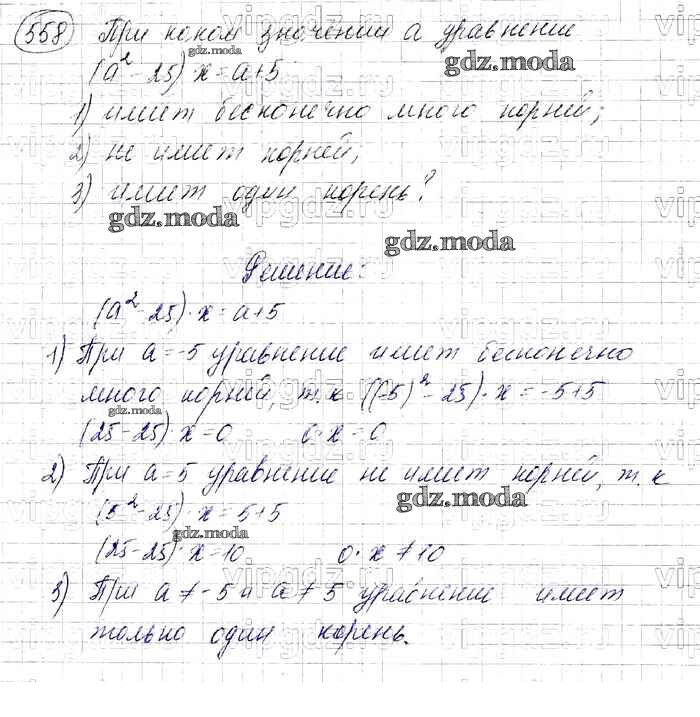 558 При каком значении а уравнение
(a² - 25)·x = a+5
1) имеет бесконечно много корней;
2) не имеет корней;
3) имеет один корень?
Решение:
(a² - 25)·x = a+5
1) При a = -5 уравнение имеет бесконечно
много корней, т.к ((-5)² - 25)·x = -5+5
(25-25)·x = 0 0·x = 0
2) При a = 5 уравнение не имеет корней, т.к
(5² - 25)·x = 5+5
(25-25)·x = 10 0·x ≠ 10
3) При a ≠ -5 и a ≠ 5 уравнение имеет
только один корень.
gdz.moda
gdz.moda
gdz.moda
gdz.moda
gdz.moda
gdz.moda
gdz.moda
vipgdz.ru